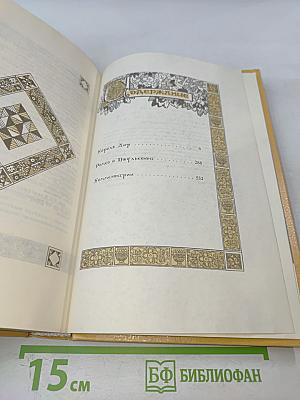 Содержание
Король Лир
Ромео и Джульетта
Комментарии
15 см
БФ БИБЛИОФАН